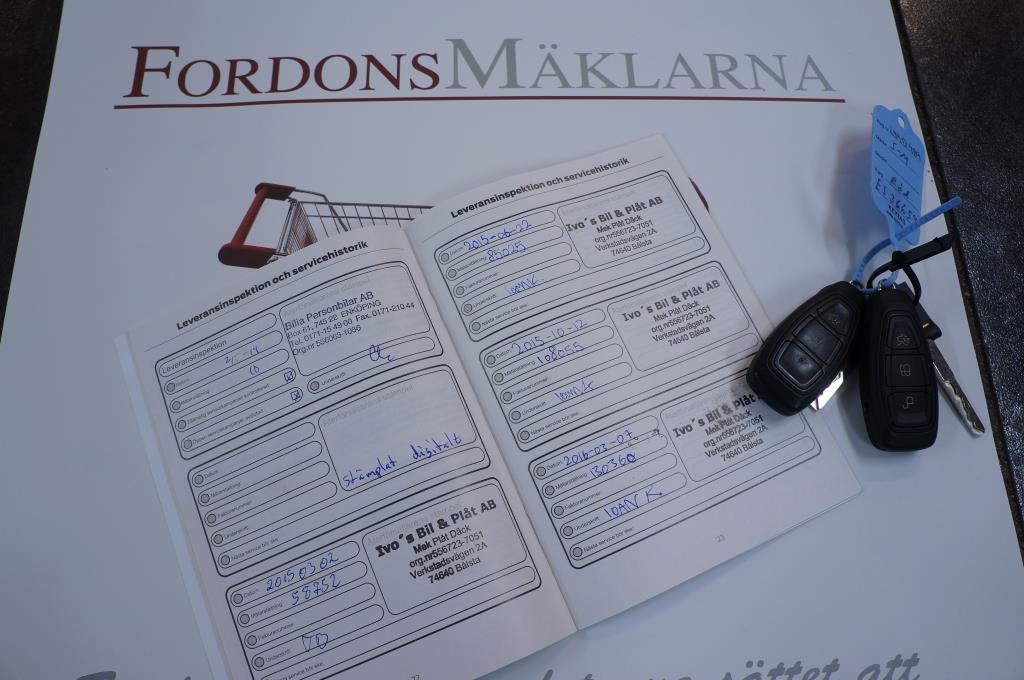 FORDONSMÄKLARNA
Leveransinspektion och servicehistorik
Leveransinspektion
Datum
Mätarställning
Bilia Personbilar AB
Box 61, 745 22 ENKÖPING
Tel. 0171-15 49 00 Fax. 0171-210 44
Org.nr 556063-1086
Underskrift
Återförsäljarens stämpel
Datum
Mätarställning
Fakturanummer
Underskrift
Nästa service bör ske:
stämplat digitalt
Återförsäljarens stämpel
Datum 20150302
Mätarställning 58752
Fakturanummer
Underskrift
Nästa service bör ske:
Ivo´s Bil & Plåt AB
Mek Plåt Däck
org.nr556723-7051
Verkstadsvägen 2A
74640 Bålsta
Leveransinspektion och servicehistorik
Datum 2015-06-22
Mätarställning 85025
Fakturanummer
Underskrift
Nästa service bör ske:
Ivo´s Bil & Plåt AB
Mek Plåt Däck
org.nr556723-7051
Verkstadsvägen 2A
74640 Bålsta
Datum 2015-10-12
Mätarställning 108055
Fakturanummer
Underskrift
Nästa service bör ske:
Ivo´s Bil & Plåt AB
Mek Plåt Däck
org.nr556723-7051
Verkstadsvägen 2A
74640 Bålsta
Datum 2016-03-07
Mätarställning 130360
Fakturanummer
Underskrift IOANK
Nästa service bör ske:
Ivo´s Bil & Plåt
Mek Plåt Däck
org.nr556723-7051
Verkstadsvägen 2A
74640 Bålsta
23
sättet att